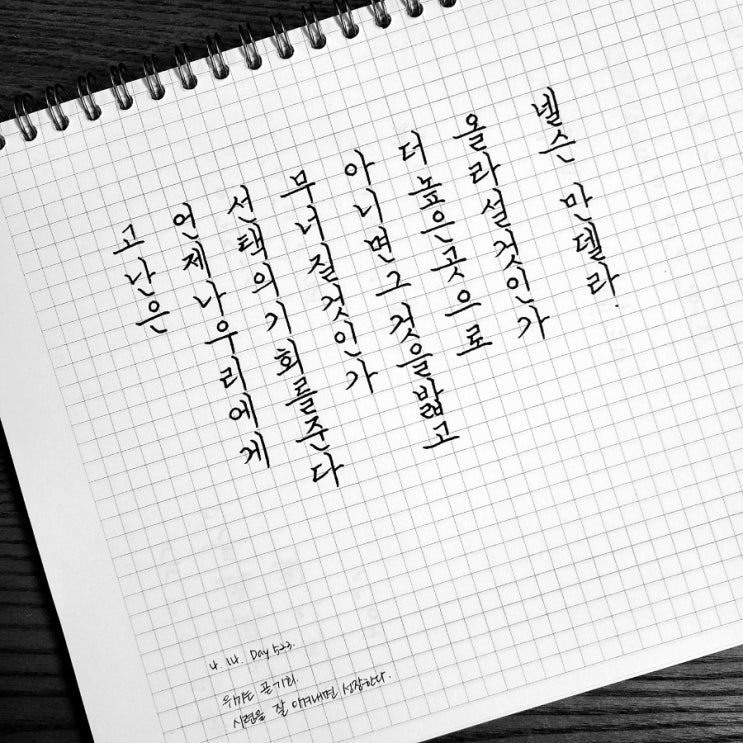 고난은
언제나우리에게
선택의기회를준다
무너질것인가
아니면그것을밟고
더높은곳으로
올라설것인가
넬슨 만델라.
4. 14. Day 523.
위기는 곧 기회.
시련을 잘 이겨내면 성장한다.